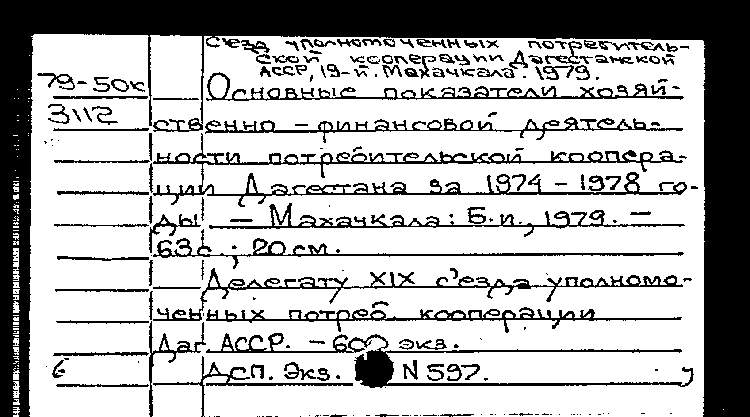 съезд уполномоченных потребитель-
ской кооперации Дагестанской
АССР, 19-й. Махачкала. 1979.
79-50к Основные показатели хозяй-
3112 ственно-финансовой деятель-
ности потребительской коопера-
ции Дагестана за 1974-1978 го-
ды. — Махачкала: Б.и., 1979. —
63с.; 20см.
Делегату XIX с'езда уполномо-
ченных потреб. кооперации
Даг. АССР. — 600 экз.
6 ДСП. Экз. N 597. у